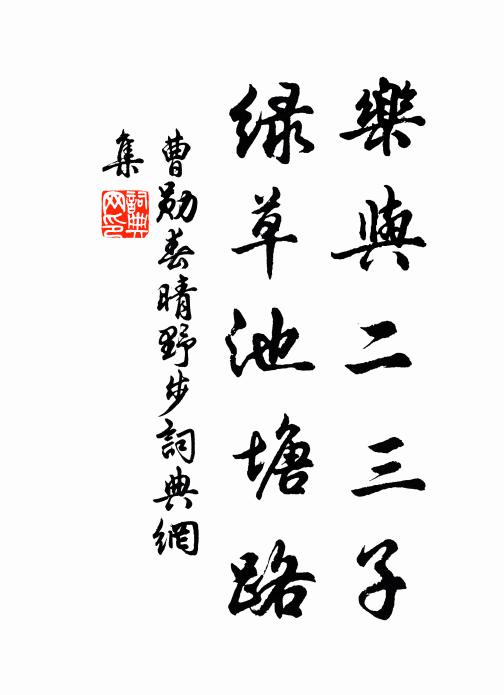 樂與二三子
綠草池塘路
曹勛春晴野步詞典網
集
詞典
网印